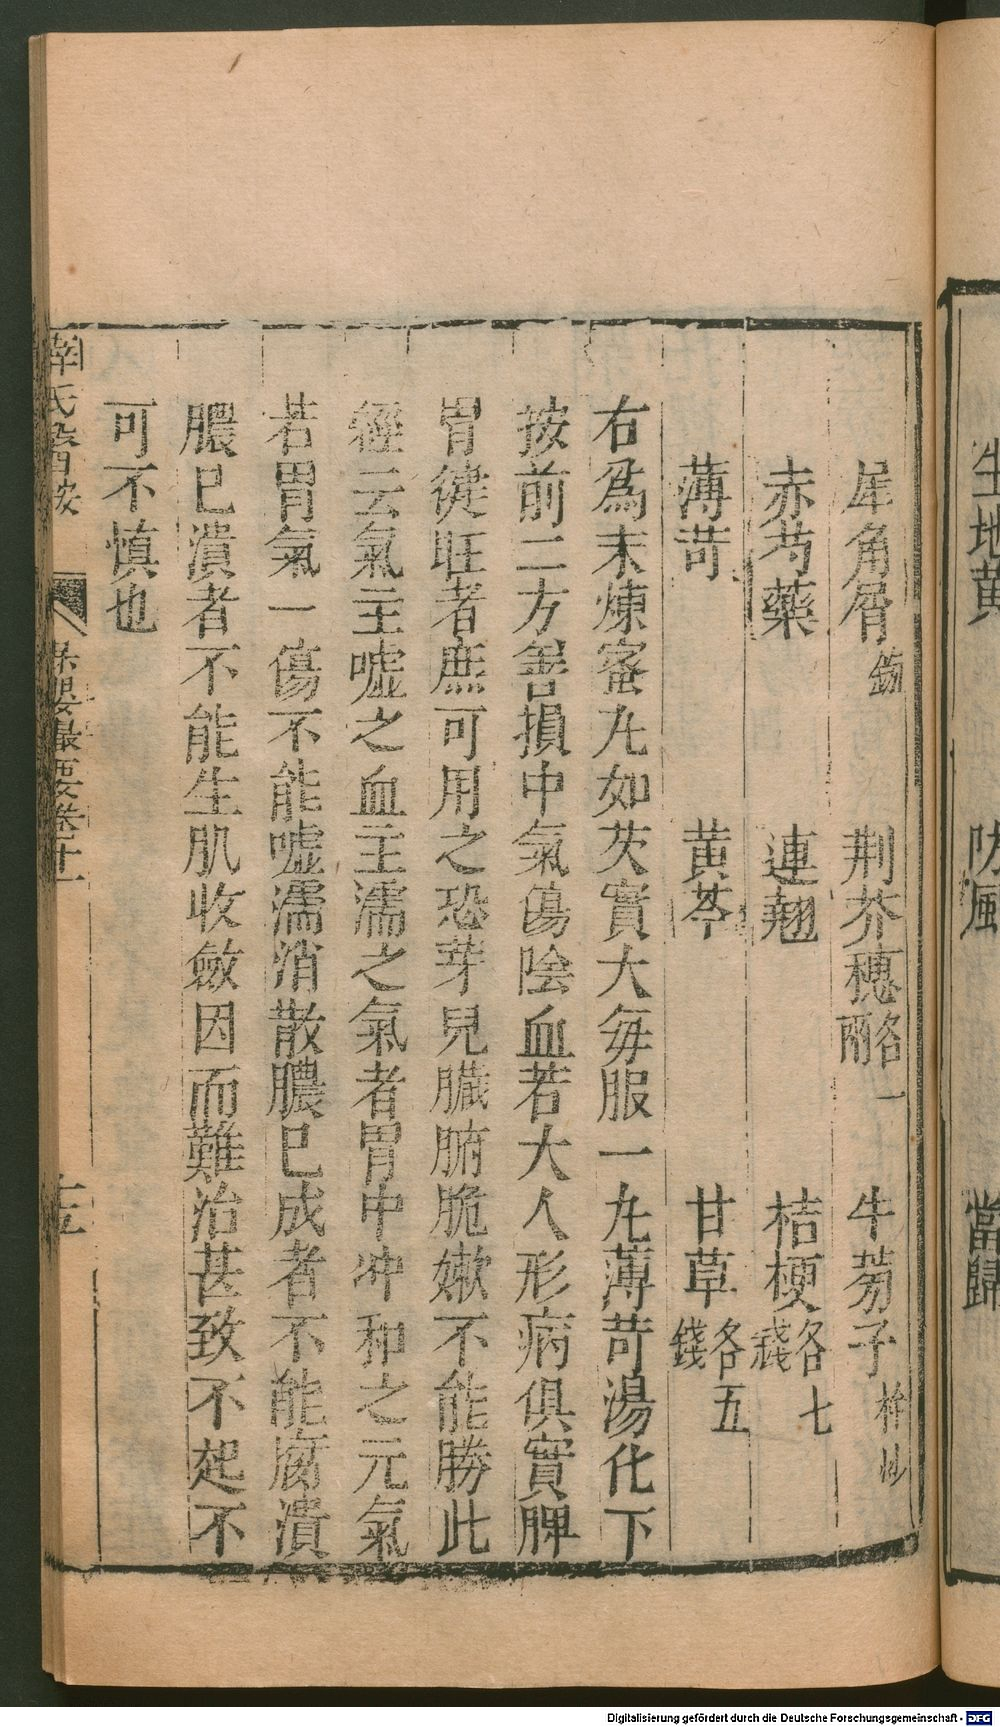 犀角屑鎊　荆芥穗各一兩　牛蒡子杵炒
赤芍藥　連翹　桔梗各七錢
薄苛　黄芩　甘草各五錢
右爲末煉蜜丸如芡實大每服一丸薄苛湯化下
按前二方善損中氣傷陰血若大人形病俱實脾
胃健旺者庶可用之恐芽兒臓腑脆嫩不能勝此
經云氣主噓之血主濡之氣者胃中冲和之元氣
若胃氣一傷不能噓濡消散膿已成者不能腐潰
膿已潰者不能生肌收斂因而難治甚致不起不
可不慎也
薛氏醫按　保嬰撮要卷十一
生地黄　防風　當歸
Digitalisierung gefördert durch die Deutsche Forschungsgemeinschaft - DFG